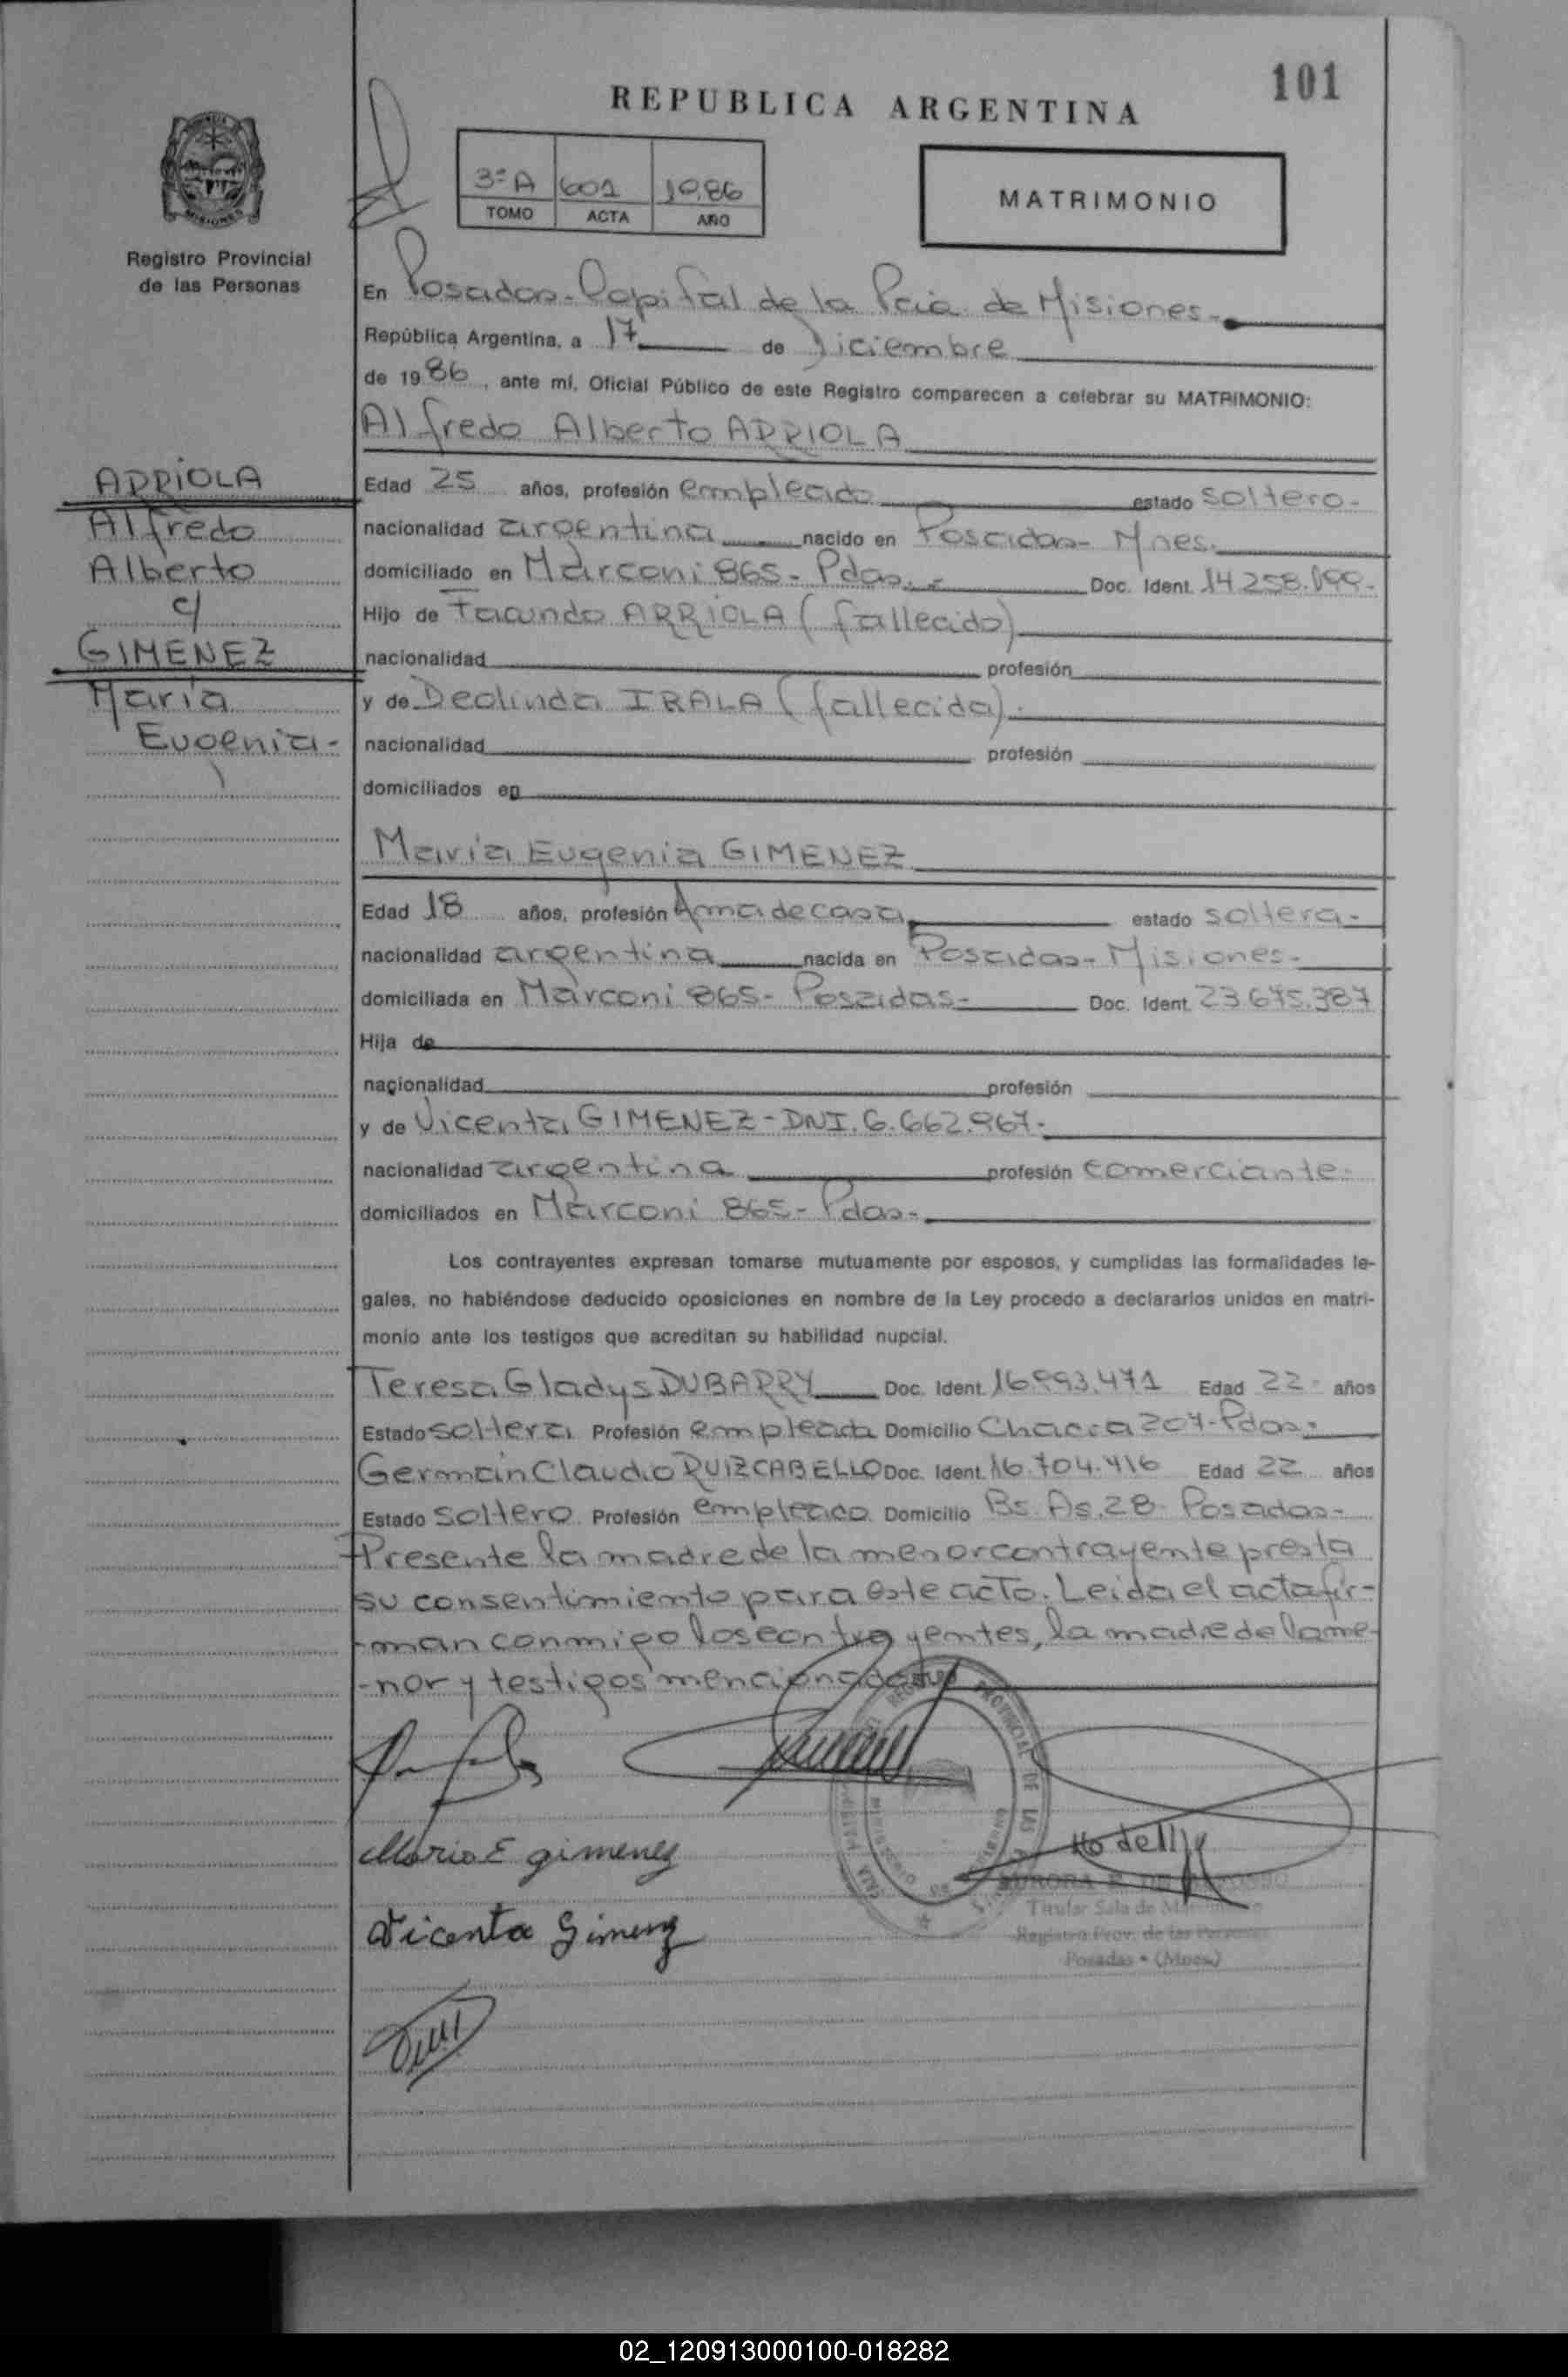 101
REPUBLICA ARGENTINA
3ª A 601 1986
TOMO ACTA AÑO
MATRIMONIO
Registro Provincial
de las Personas
En Posadas- Capital de la Pcia. de Misiones.-
República Argentina, a 17 de Diciembre
de 1986, ante mí, Oficial Público de este Registro comparecen a celebrar su MATRIMONIO:
Alfredo Alberto ARRIOLA
ARRIOLA
Alfredo
Alberto
c/
GIMENEZ
Maria
Eugenia-
Edad 25 años, profesión empleado estado soltero-
nacionalidad argentina nacido en Posadas- Mnes.
domiciliado en Marconi 865- Pdas.- Doc. Ident. 14.258.099-
Hijo de Facundo ARRIOLA (fallecido)
nacionalidad profesión
y de Deolinda IRALA (fallecida).
nacionalidad profesión
domiciliados en
Maria Eugenia GIMENEZ
Edad 18 años, profesión Ama de casa estado soltera-
nacionalidad argentina nacida en Posadas- Misiones-
domiciliada en Marconi 865- Posadas- Doc. Ident. 23.675.387
Hija de
nacionalidad profesión
y de Vicenta GIMENEZ- DNI. 6.662.967-
nacionalidad argentina profesión comerciante-
domiciliados en Marconi 865- Pdas-
Los contrayentes expresan tomarse mutuamente por esposos, y cumplidas las formalidades le-
gales, no habiéndose deducido oposiciones en nombre de la Ley procedo a declararlos unidos en matri-
monio ante los testigos que acreditan su habilidad nupcial.
Teresa Gladys DUBARRY Doc. Ident. 16.993.471 Edad 22 años
Estado soltera Profesión empleada Domicilio Chacra 207-Pdas-
Germain Claudio RUIZ CABELLO Doc. Ident. 16.704.416 Edad 22 años
Estado soltero Profesión empleado Domicilio Bs. As. 28- Posadas-
Presente la madre de la menor contrayente presta
su consentimiento para este acto. Leida el acta fir-
-man conmigo los contrayentes, la madre de la me-
-nor y testigos mencionados
Maria E gimenez
Vicenta Gimenez
Titular Sala de
Registro Prov. de las Personas
Posadas - (Mnes.)
REGISTRO PROVINCIAL DE LAS
02_120913000100-018282